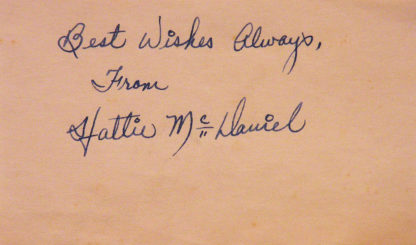 Best Wishes Always,
From
Hattie McDaniel